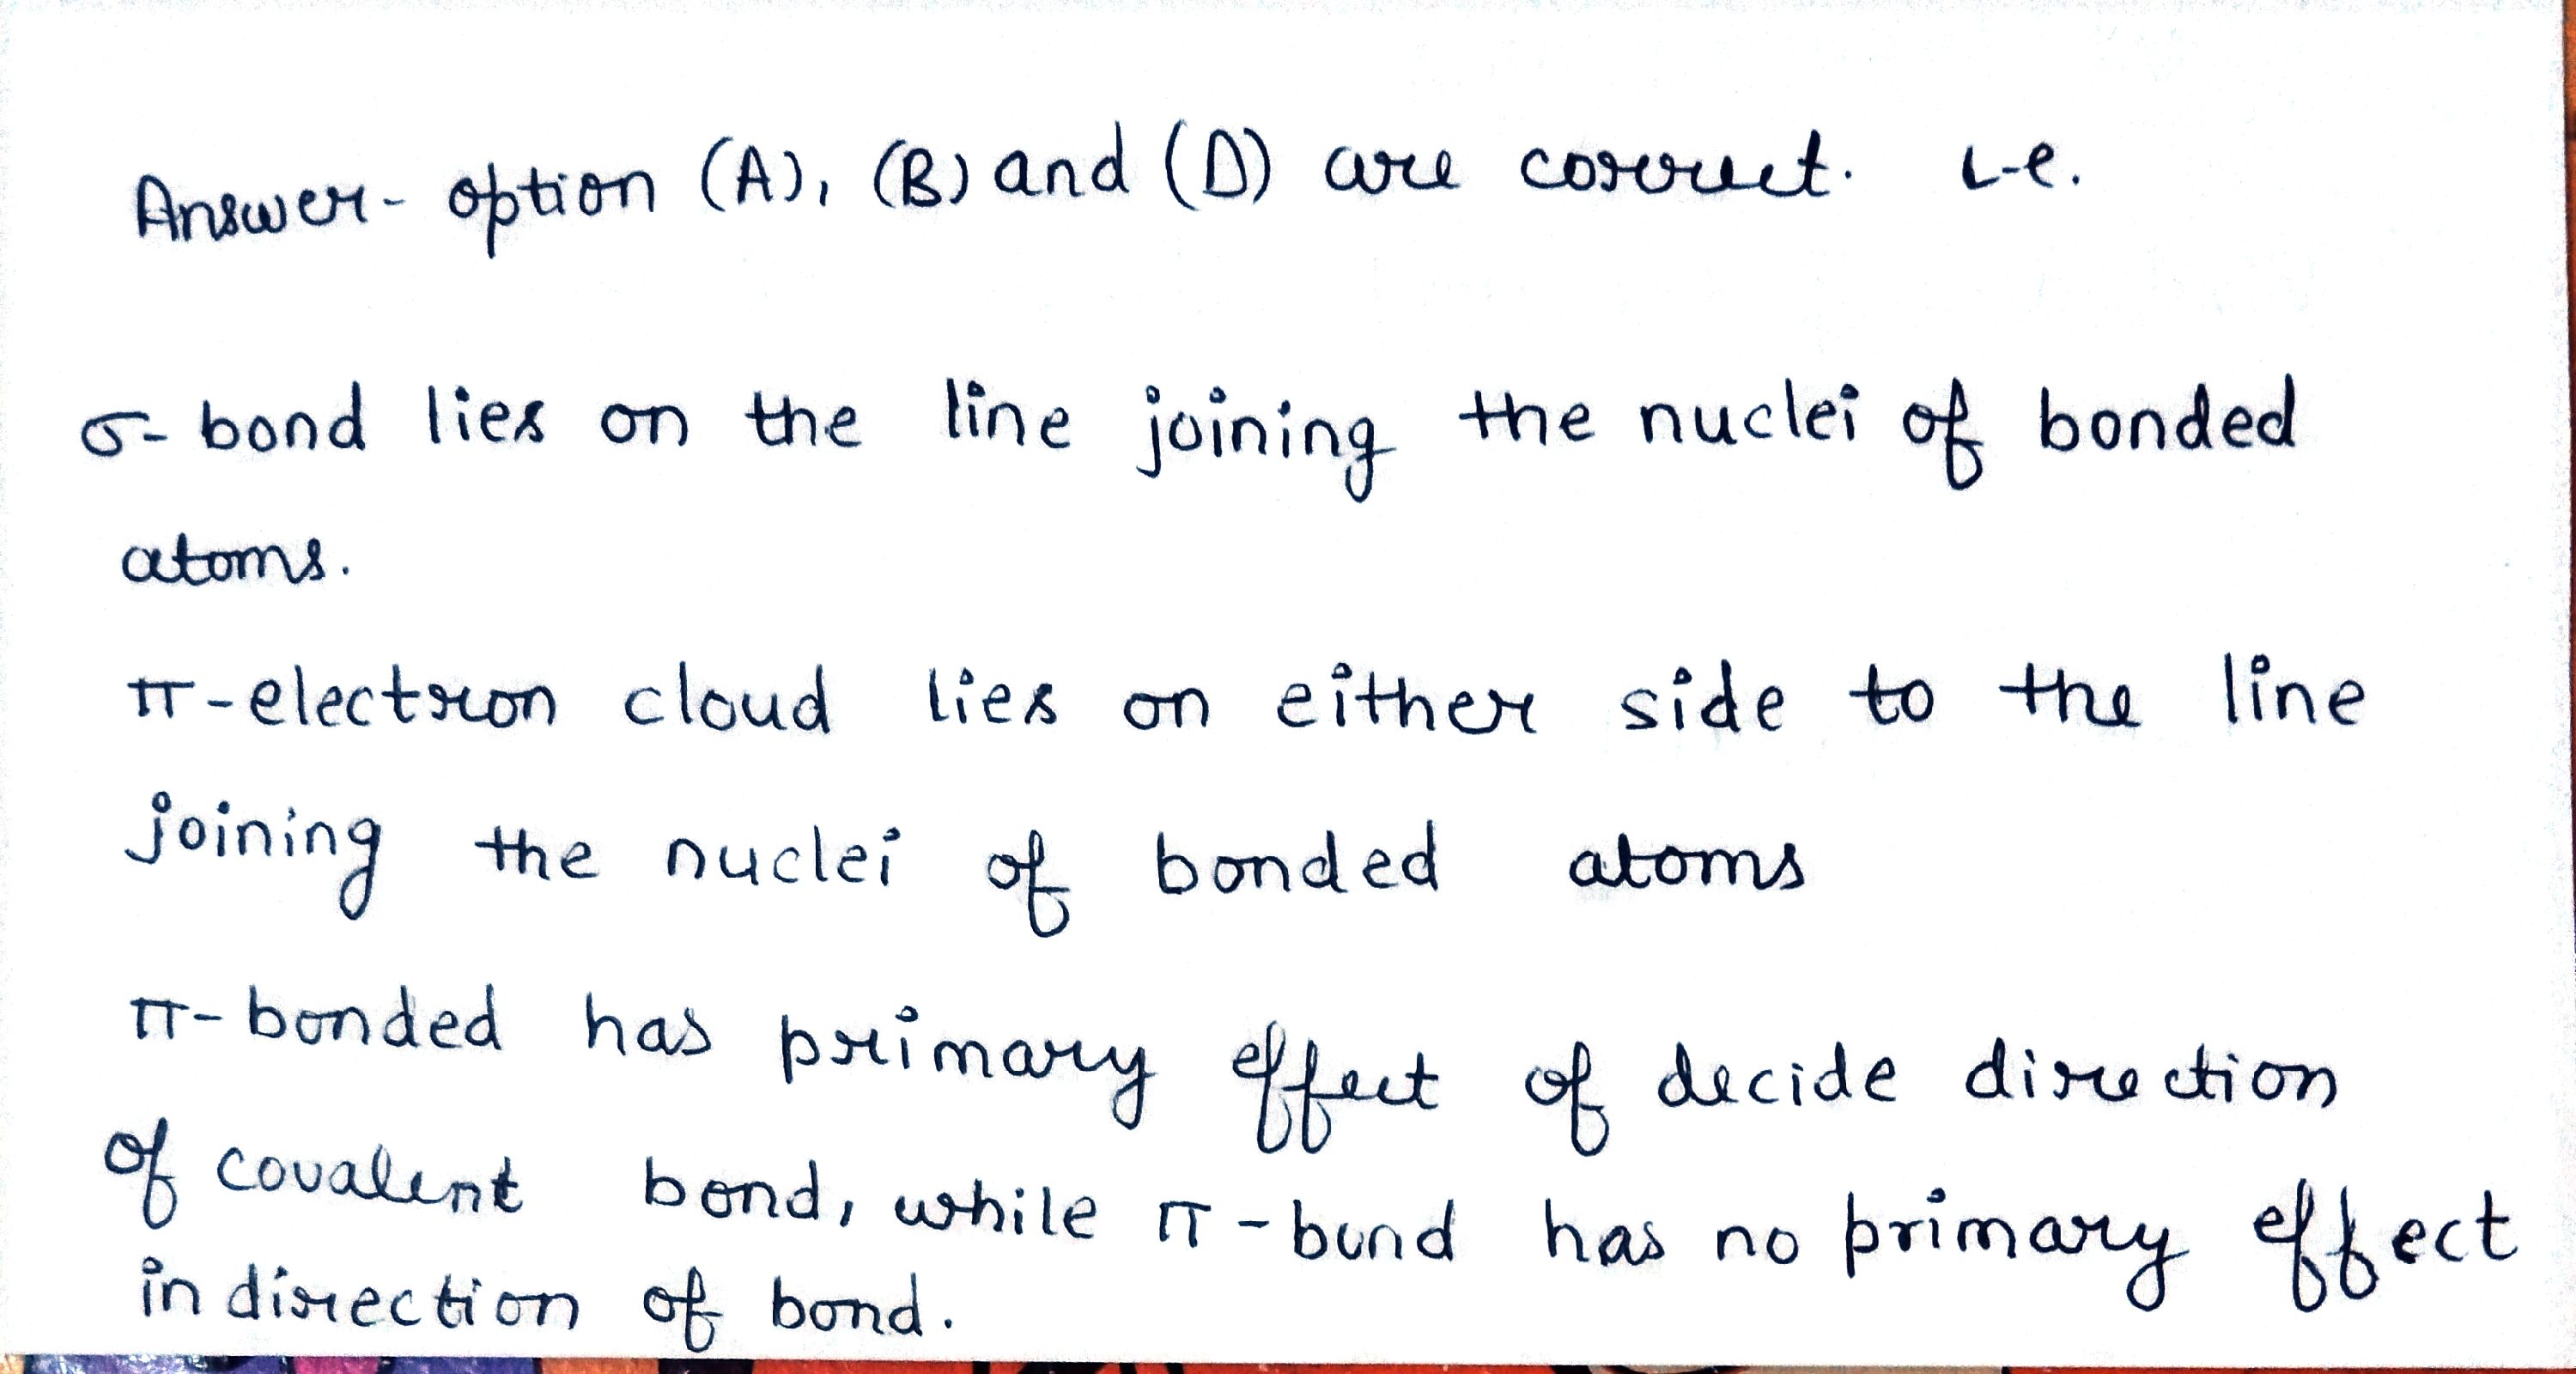 Answer - option (A), (B) and (D) are correct. i.e.
σ- bond lies on the line joining the nuclei of bonded
atoms.
π-electron cloud lies on either side to the line
joining the nuclei of bonded atoms
π-bonded has primary effect of decide direction
of covalent bond, while π-bond has no primary effect
in direction of bond.